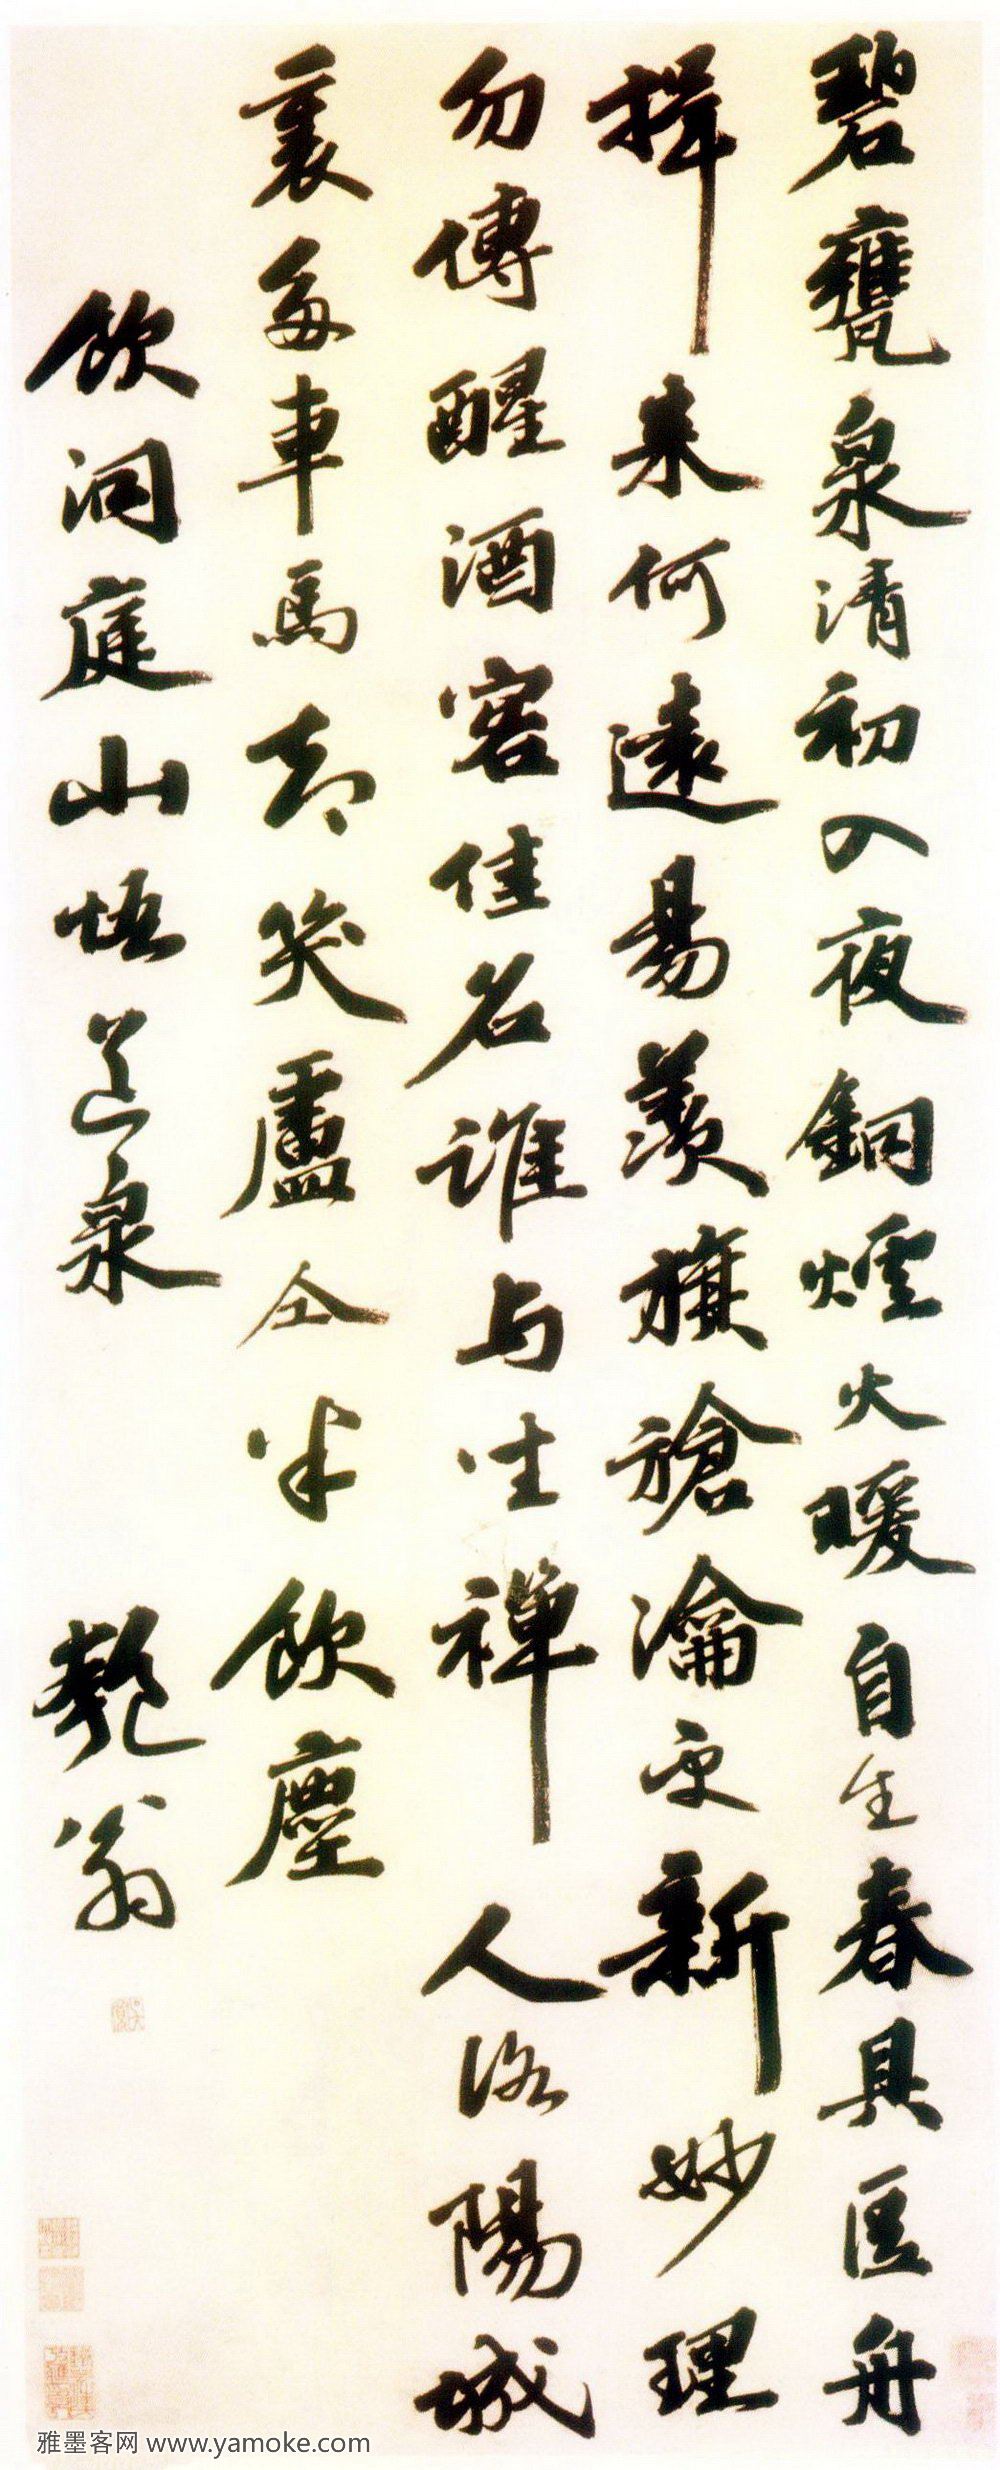 碧甕泉清初入夜銅爐火暖自生春具區舟
楫來何遠昜羨旗槍瀹更新妙理
勿傳醒酒客佳名誰与坐禪人洛陽城
裏多車馬却笑盧仝半飲塵
飲洞庭山悟道泉 匏翁
雅墨客网 www.yamoke.com